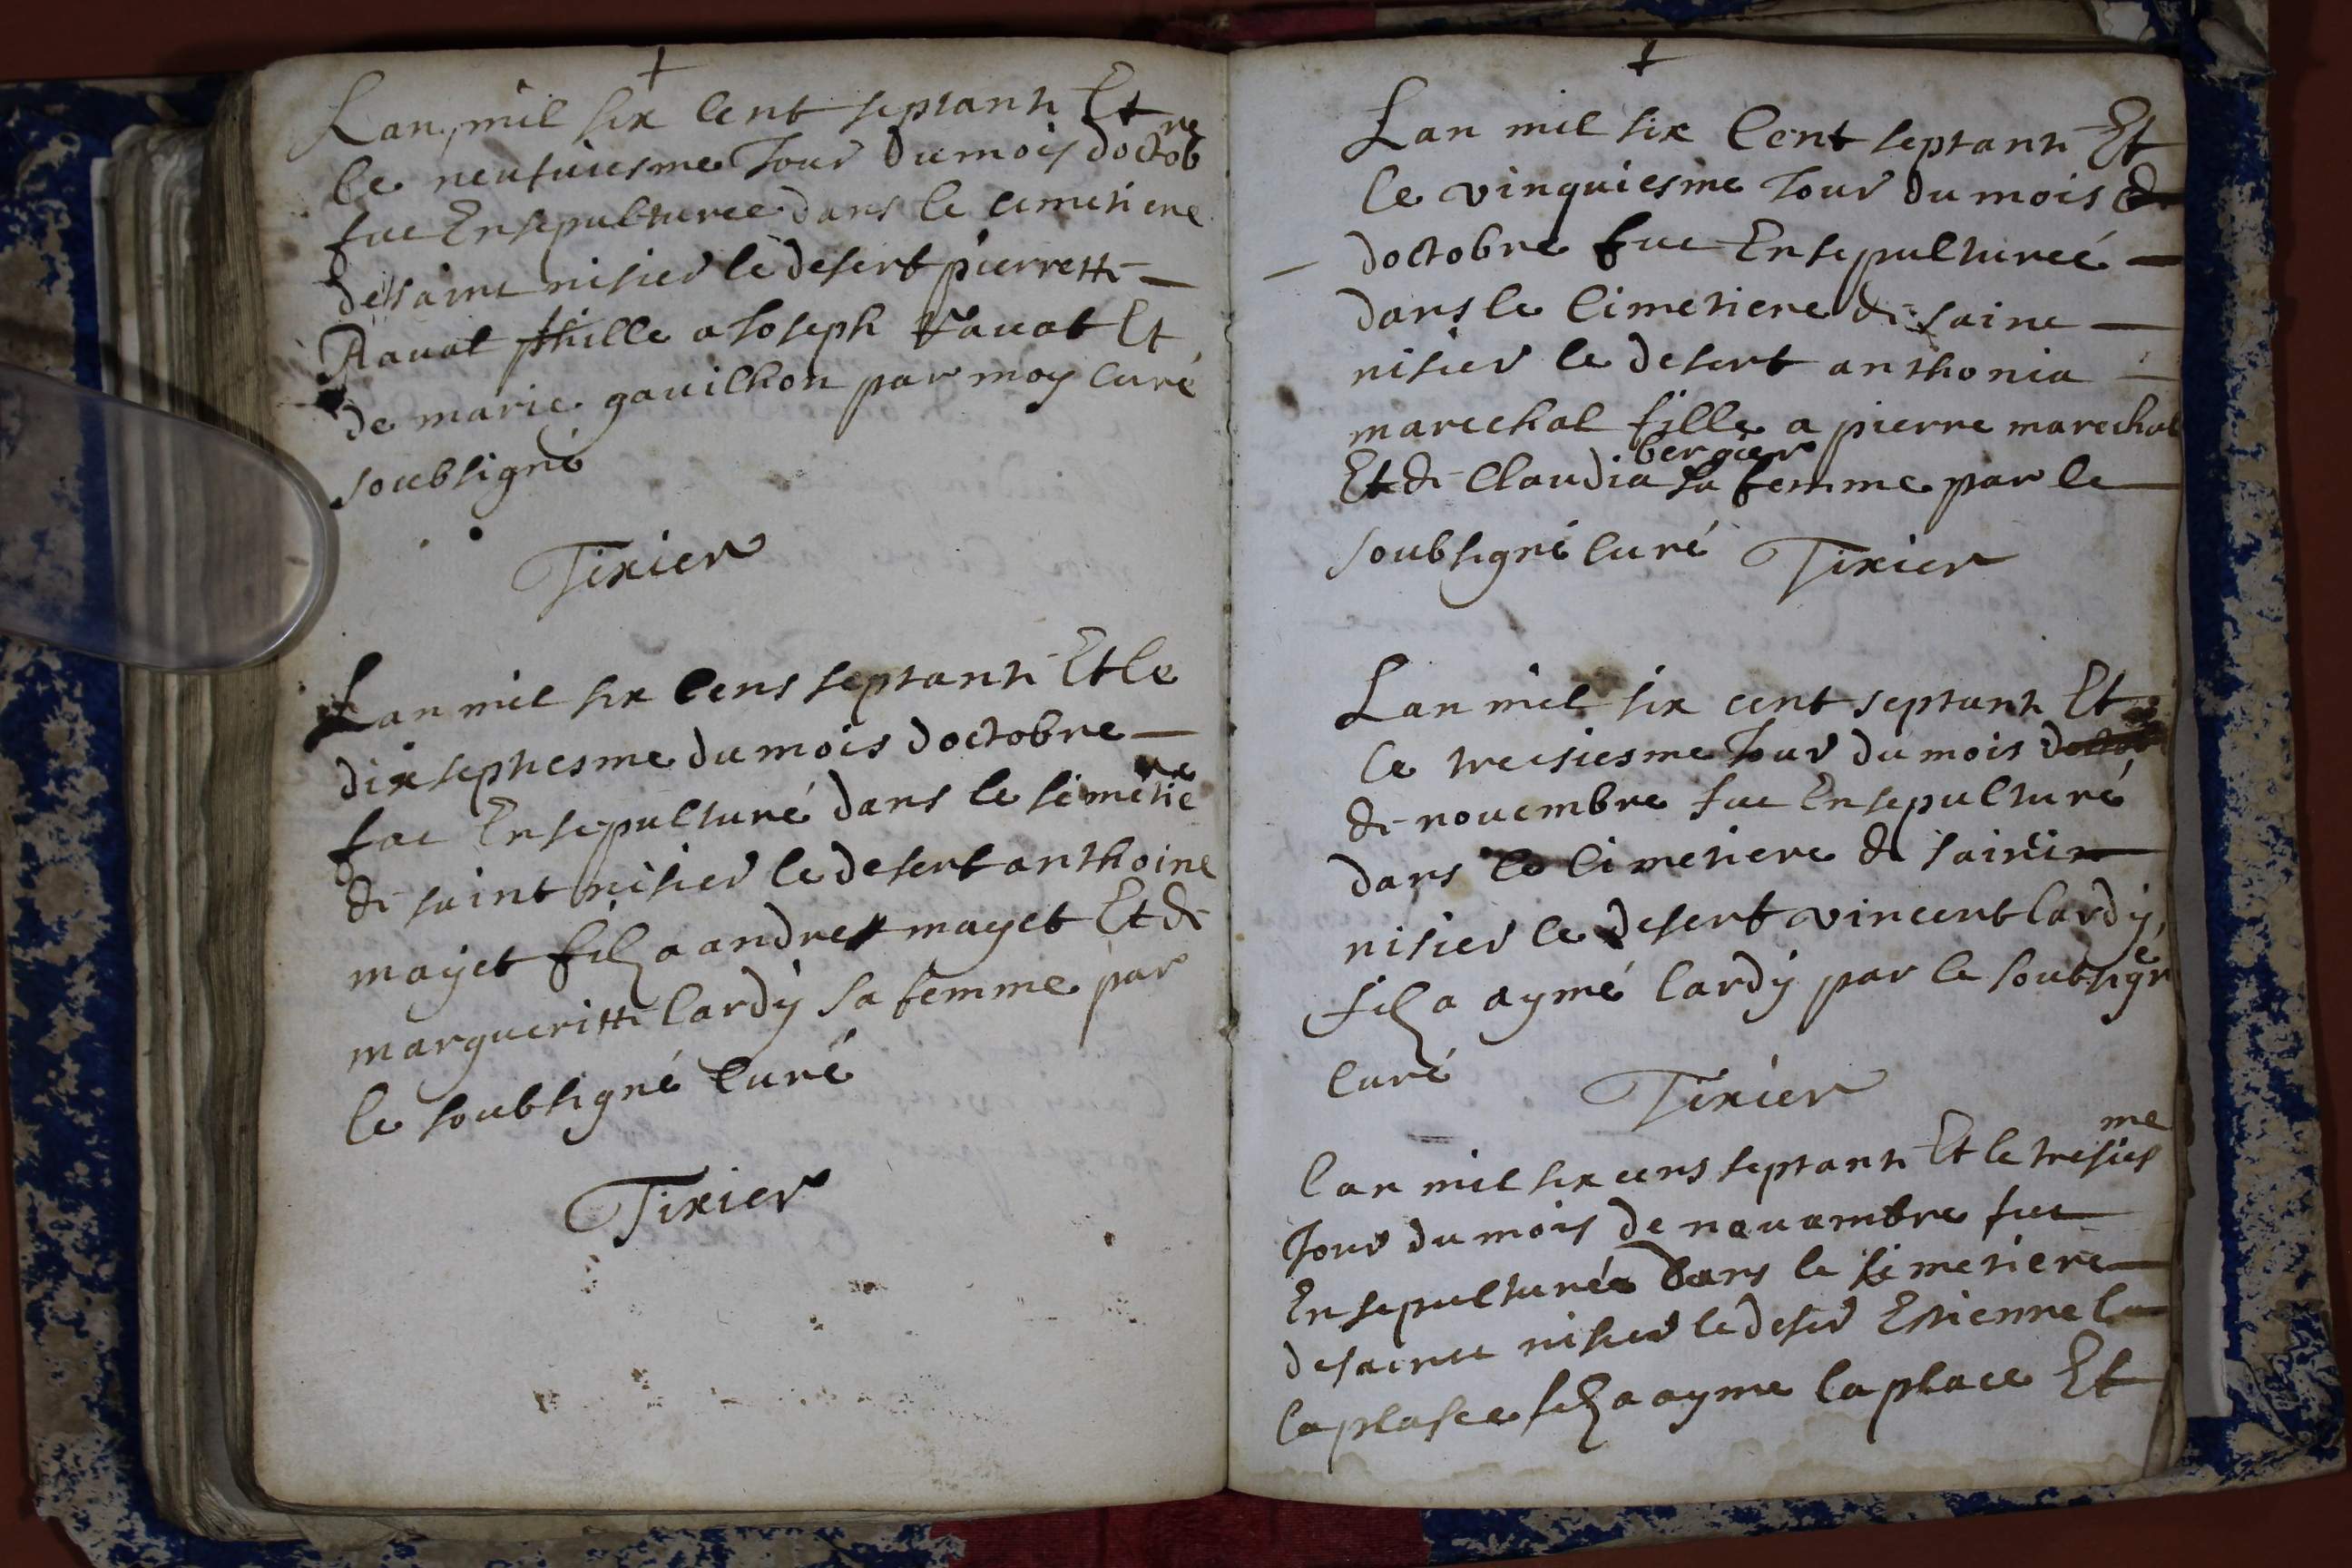 +
Lan mil six cent septante Et
le neufuiesme Jour du mois doctobre
fut Ensepulturee dans le cimetiere
de saint nisier le desert pierrette
Rauat fille a Joseph Rauat Et
de marie gauilhon par moy curé
soubsigné
Tixier
Lan mil six cens septante Et le
dix septiesme du mois doctobre
fut Ensepulturé dans le simetiere
de saint nisier le desert anthoine
mayet filz a andre mayet Et de
margueritte Cardy sa femme par
le soubsigné curé
Tixier
+
Lan mil six Cent septante Et
le vinquiesme Jour du mois de
doctobre fut Ensepultureé
dans le Cimetiere de saint
nisier le desert anthonia
marechal fille a pierre marechal
bergier
Et de Claudia sa femme par le
soubsigné curé Tixier
Lan mil six cent septante Et
le treisiesme Jour du mois doctob
de nouembre fut Ensepulturé
dans le cimetiere de saint
nisier le desert vincent Cardy
filz a aymé Cardy par le soubsigné
curé
Tixier
Lan mil six cens septante Et le tresiesme
Jour du mois de nouambre fut
Ensepulturée dans le simetiere
de saint nisier le deser Estienne la
laplasce filz a ayme la place Et